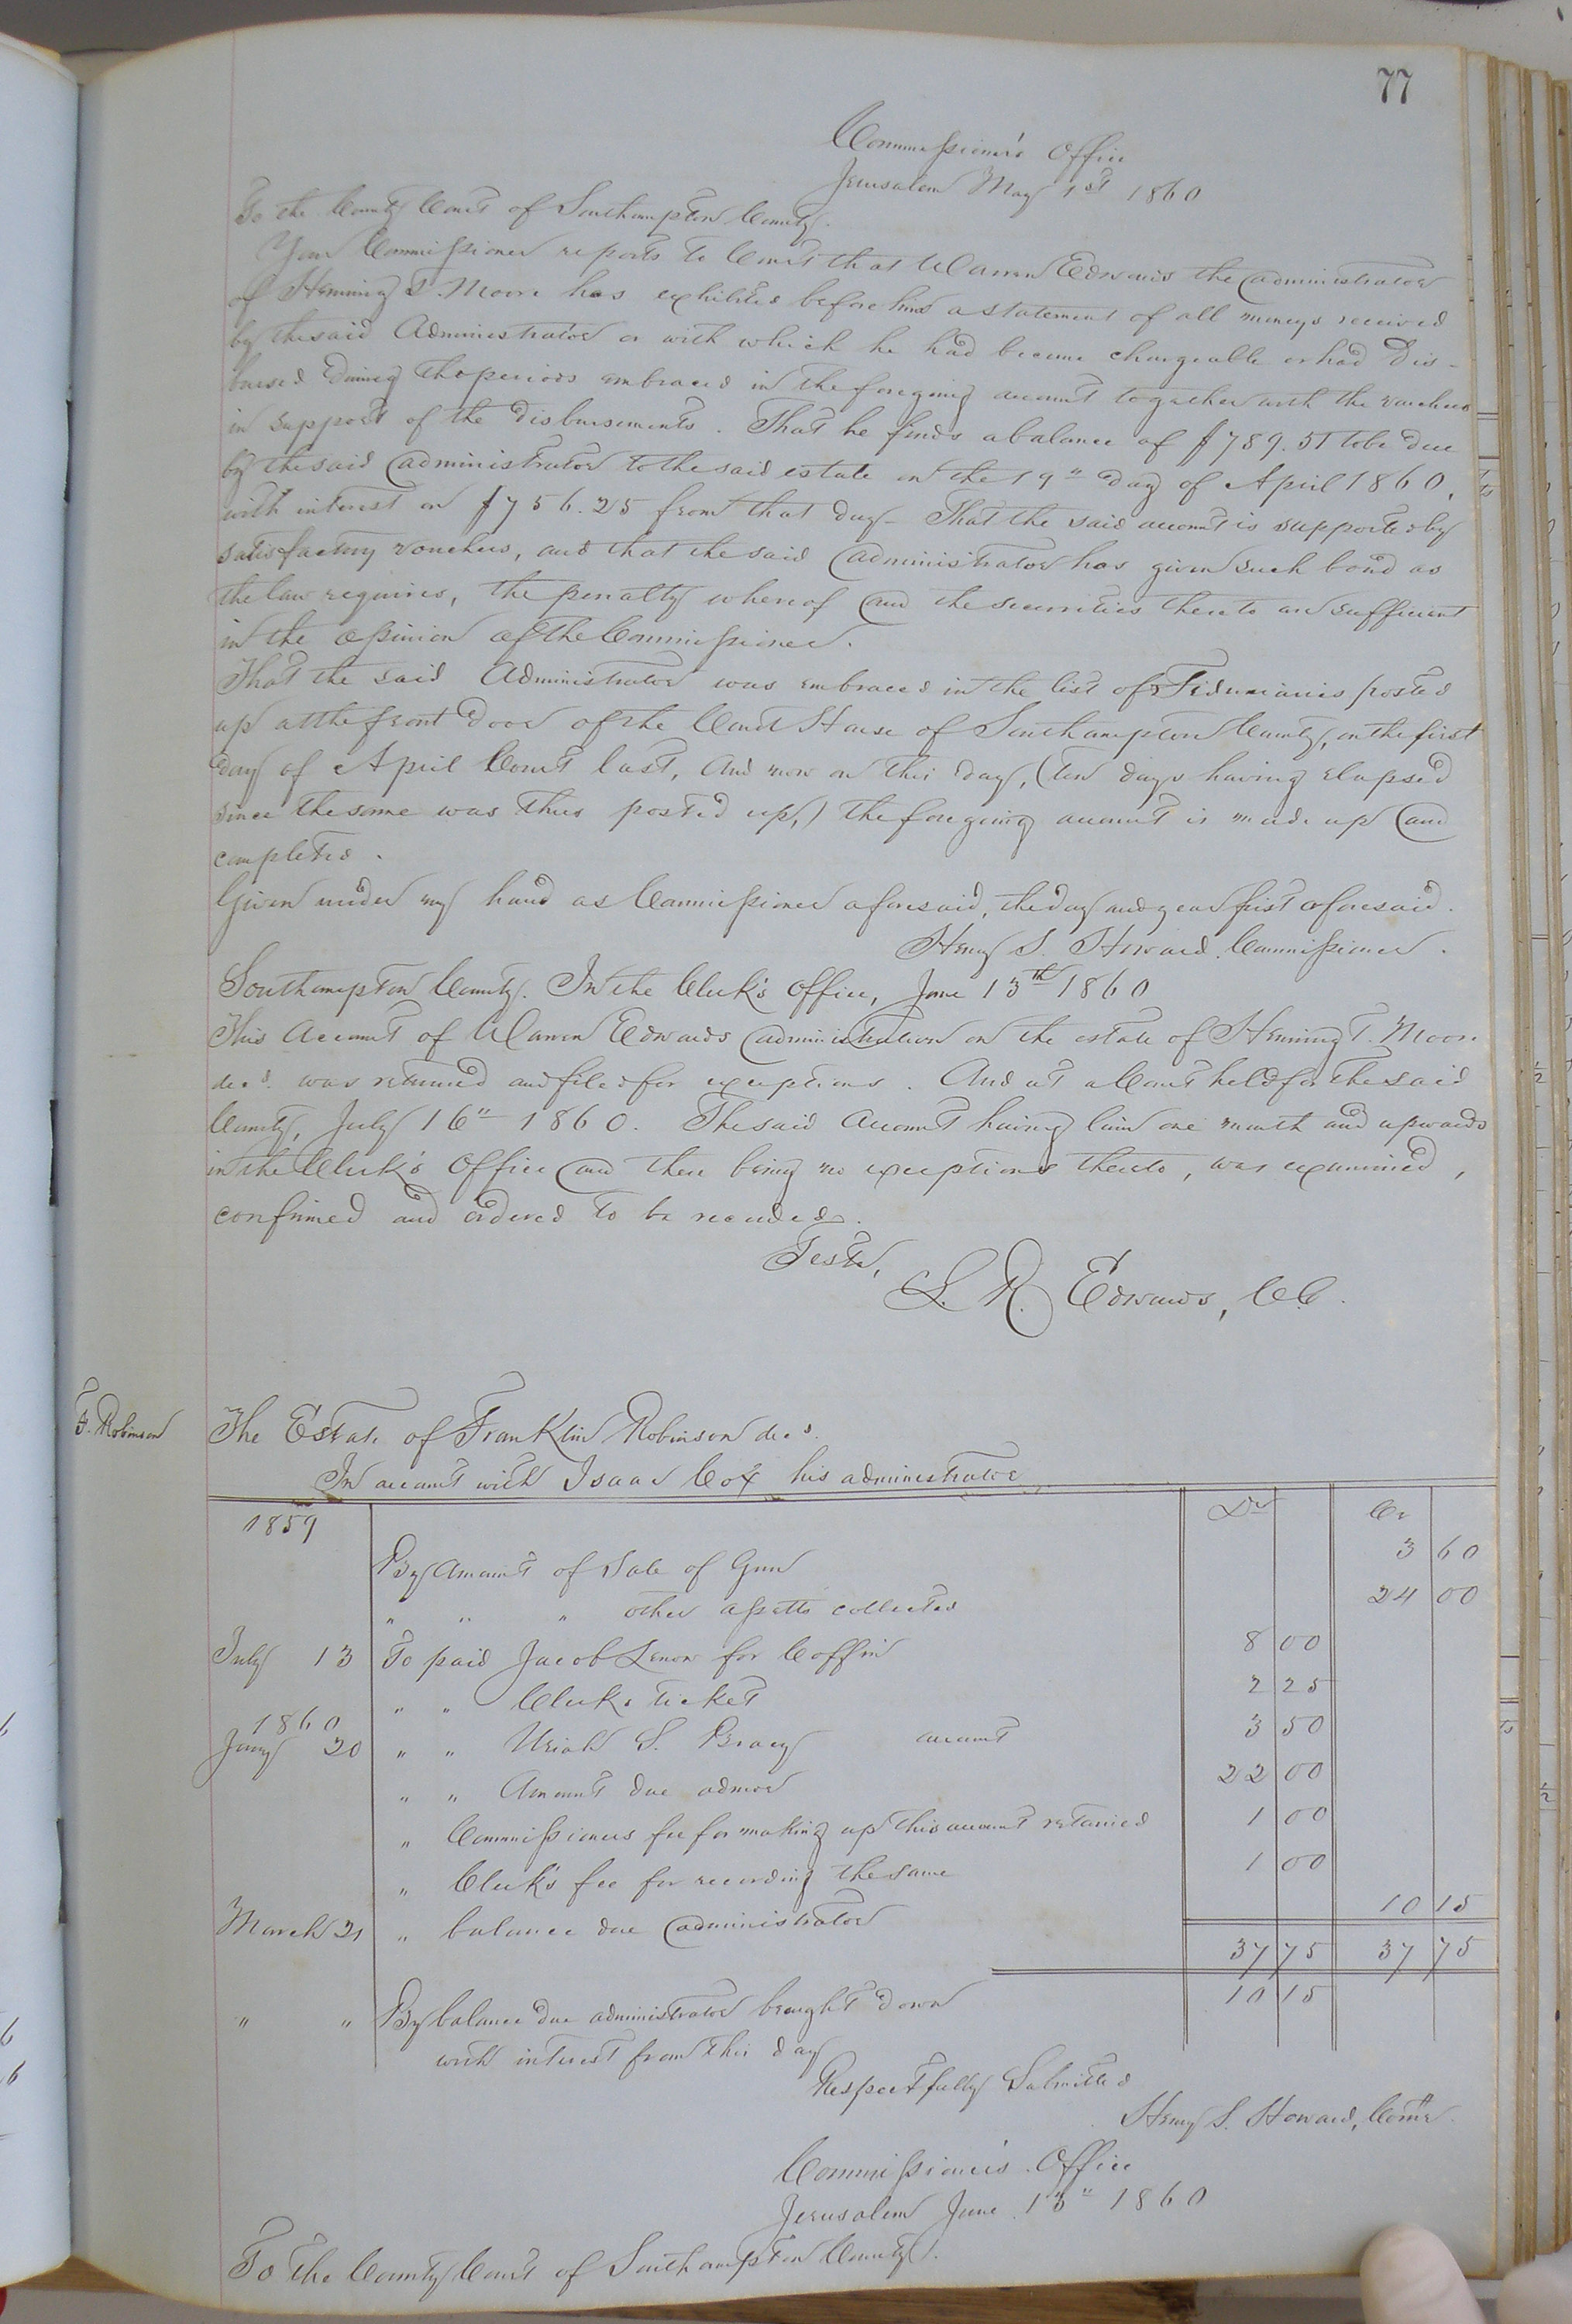 77
Commissioner's Office
Jerusalem May 1st 1860
To the County Court of Southampton County.
Your Commissioner reports to Court that Warren Edwards the administrator
of Henning T. Moore has exhibited before him a statement of all moneys received
by the said Administrator or with which he had become chargeable or had dis-
bursed during the periods embraced in the foregoing account together with the vouchers
in support of the disbursements. That he finds a balance of $789.51 to be due
by the said administrator to the said estate on the 19" day of April 1860,
with interest on $756.25 from that day - That the said account is supported by
satisfactory vouchers, and that the said administrator has given such bond as
the law requires, the penalty whereof and the securities thereto are sufficient
in the opinion of the Commissioner.
That the said Administrator was embraced in the list of Fiduciaries posted
up at the front door of the Court House of Southampton County, on the first
day of April Court last, And now on this day, (ten days having elapsed
since the same was thus posted up,) the foregoing account is made up and
completed.
Given under my hand as Commissioner aforesaid, the day and year first aforesaid.
Henry S. Howard Commissioner.
Southampton County. In the Clerk's Office, June 13th 1860
This Account of Warren Edwards administrator on the estate of Henning T. Moore
decd. was returned and filed for exceptions. And at a Court held for the said
County, July 16" 1860. The said Account having lain one month and upwards
in the Clerk's Office and there being no exceptions thereto, was examined,
confirmed and ordered to be recorded.
Teste,
L. R. Edwards, CC.
F. Robinson
The Estate of Franklin Robinson decd.
In account with Isaac Cox his administrator
1859 Dr Cr
By Amount of Sale of Gun 3 60
" " " other assetts collected 24 00
July 13 To paid Jacob Lenow for Coffin 8 00
" " Clerks ticket 2 25
1860
Jany 20 " " Uriah S. Bracy account 3 50
" " Amount due admor 22 00
" Commissioners fee for making up this account retained 1 00
" Clerk's fee for recording the same 1 00
March 21 " balance due administrator 10 15
37 75 37 75
" " By balance due administrator brought down 10 15
with interest from this day
Respectfully Submitted
Henry S. Howard, Comr.
Commissioner's Office
Jerusalem June 13" 1860
To the County Court of Southampton County.